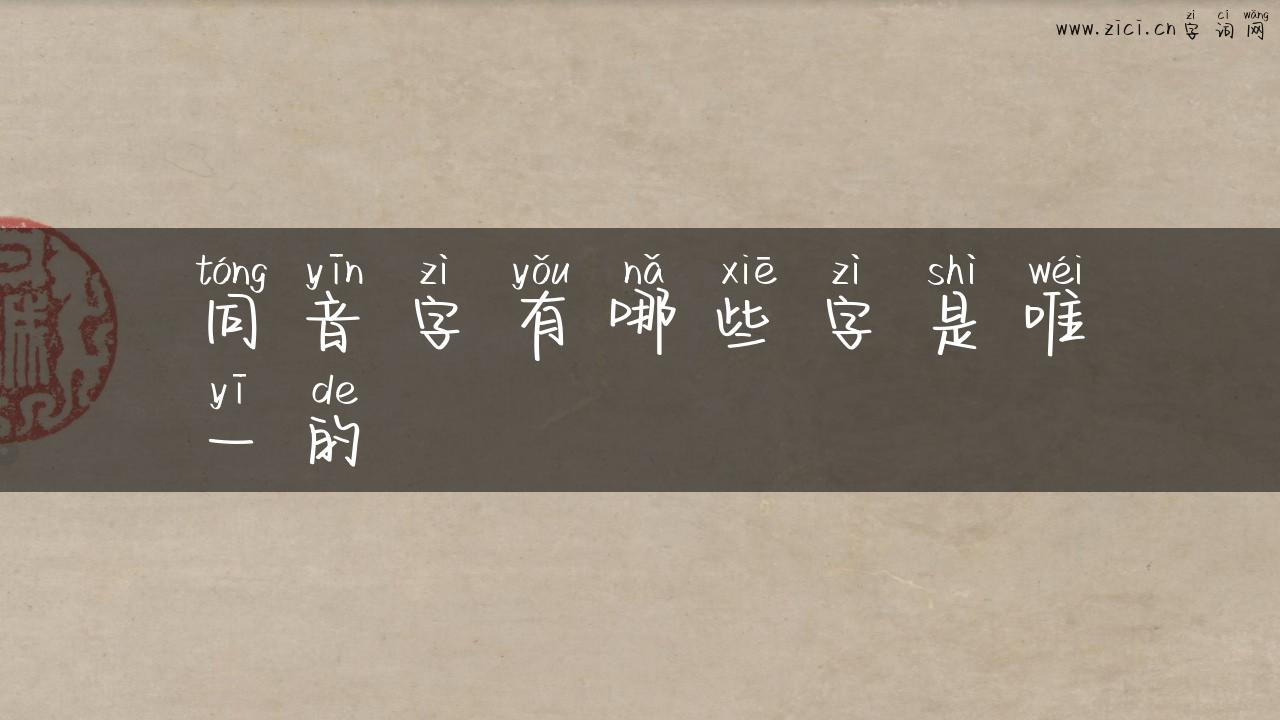 zì cí wǎng
www.zici.cn 字词网
tóng yīn zì yǒu nǎ xiē zì shì wéi
同音字有哪些字是唯
yī de
一的